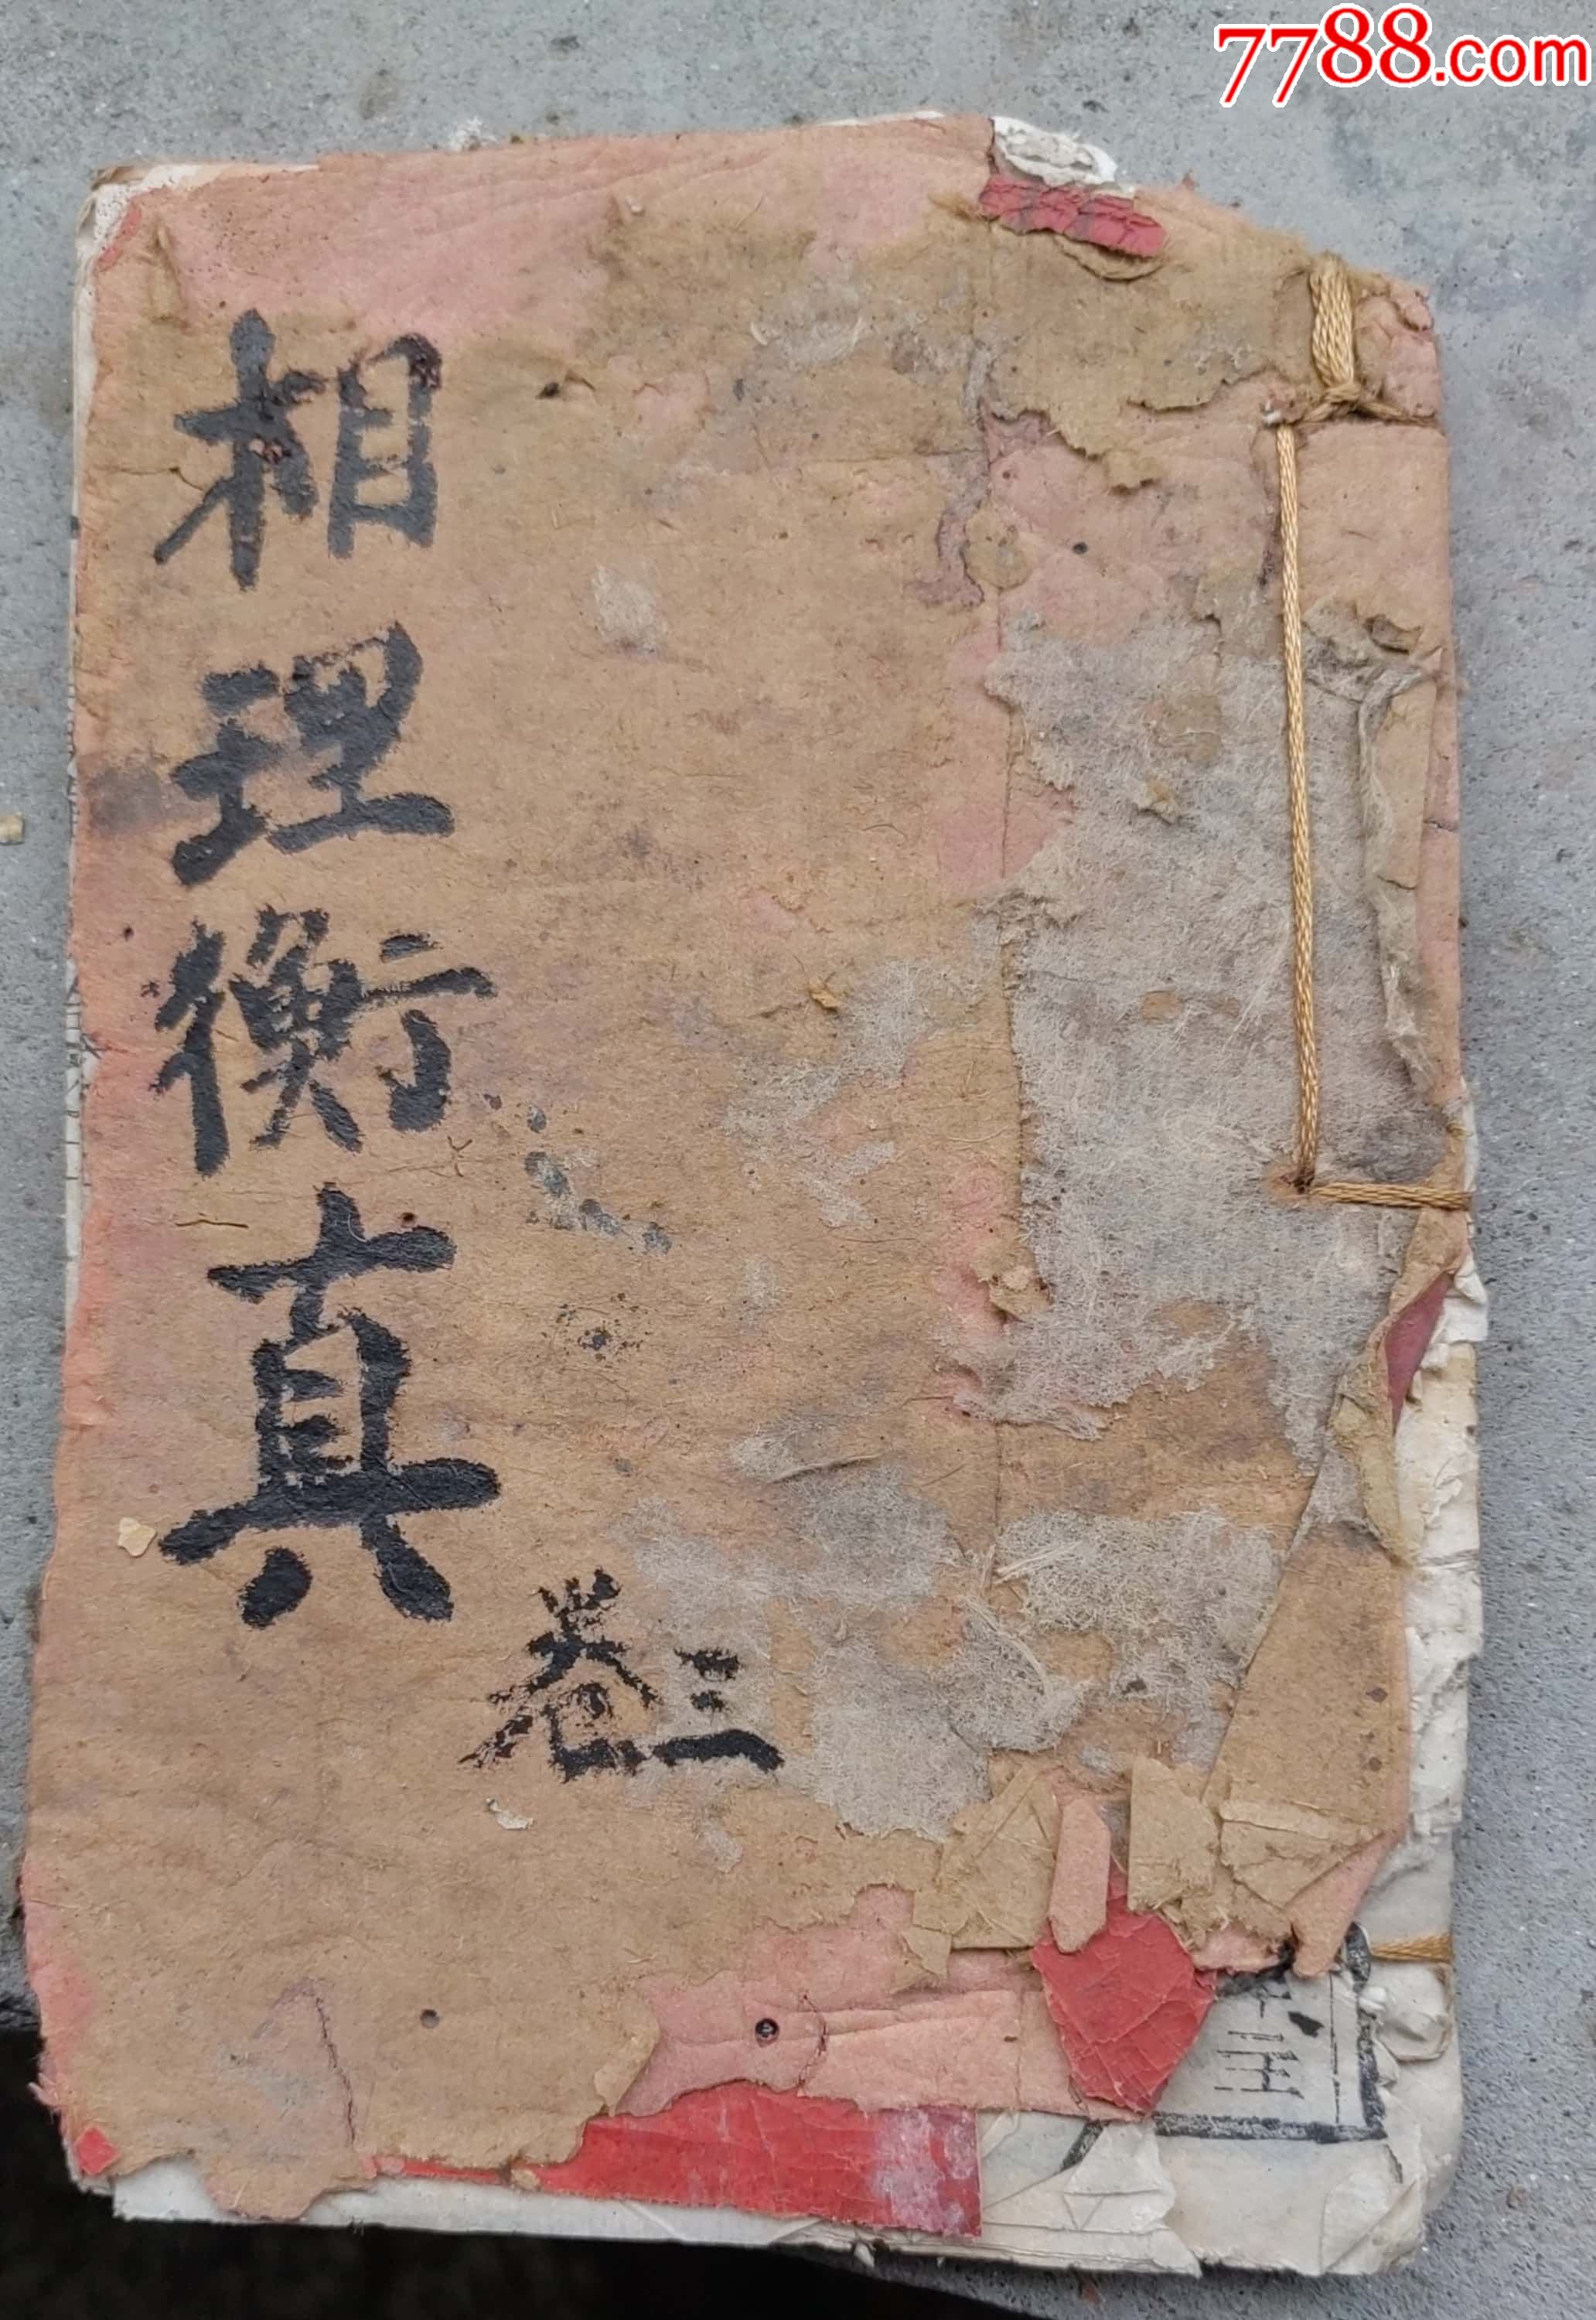 7788.com
相理衡真
卷三